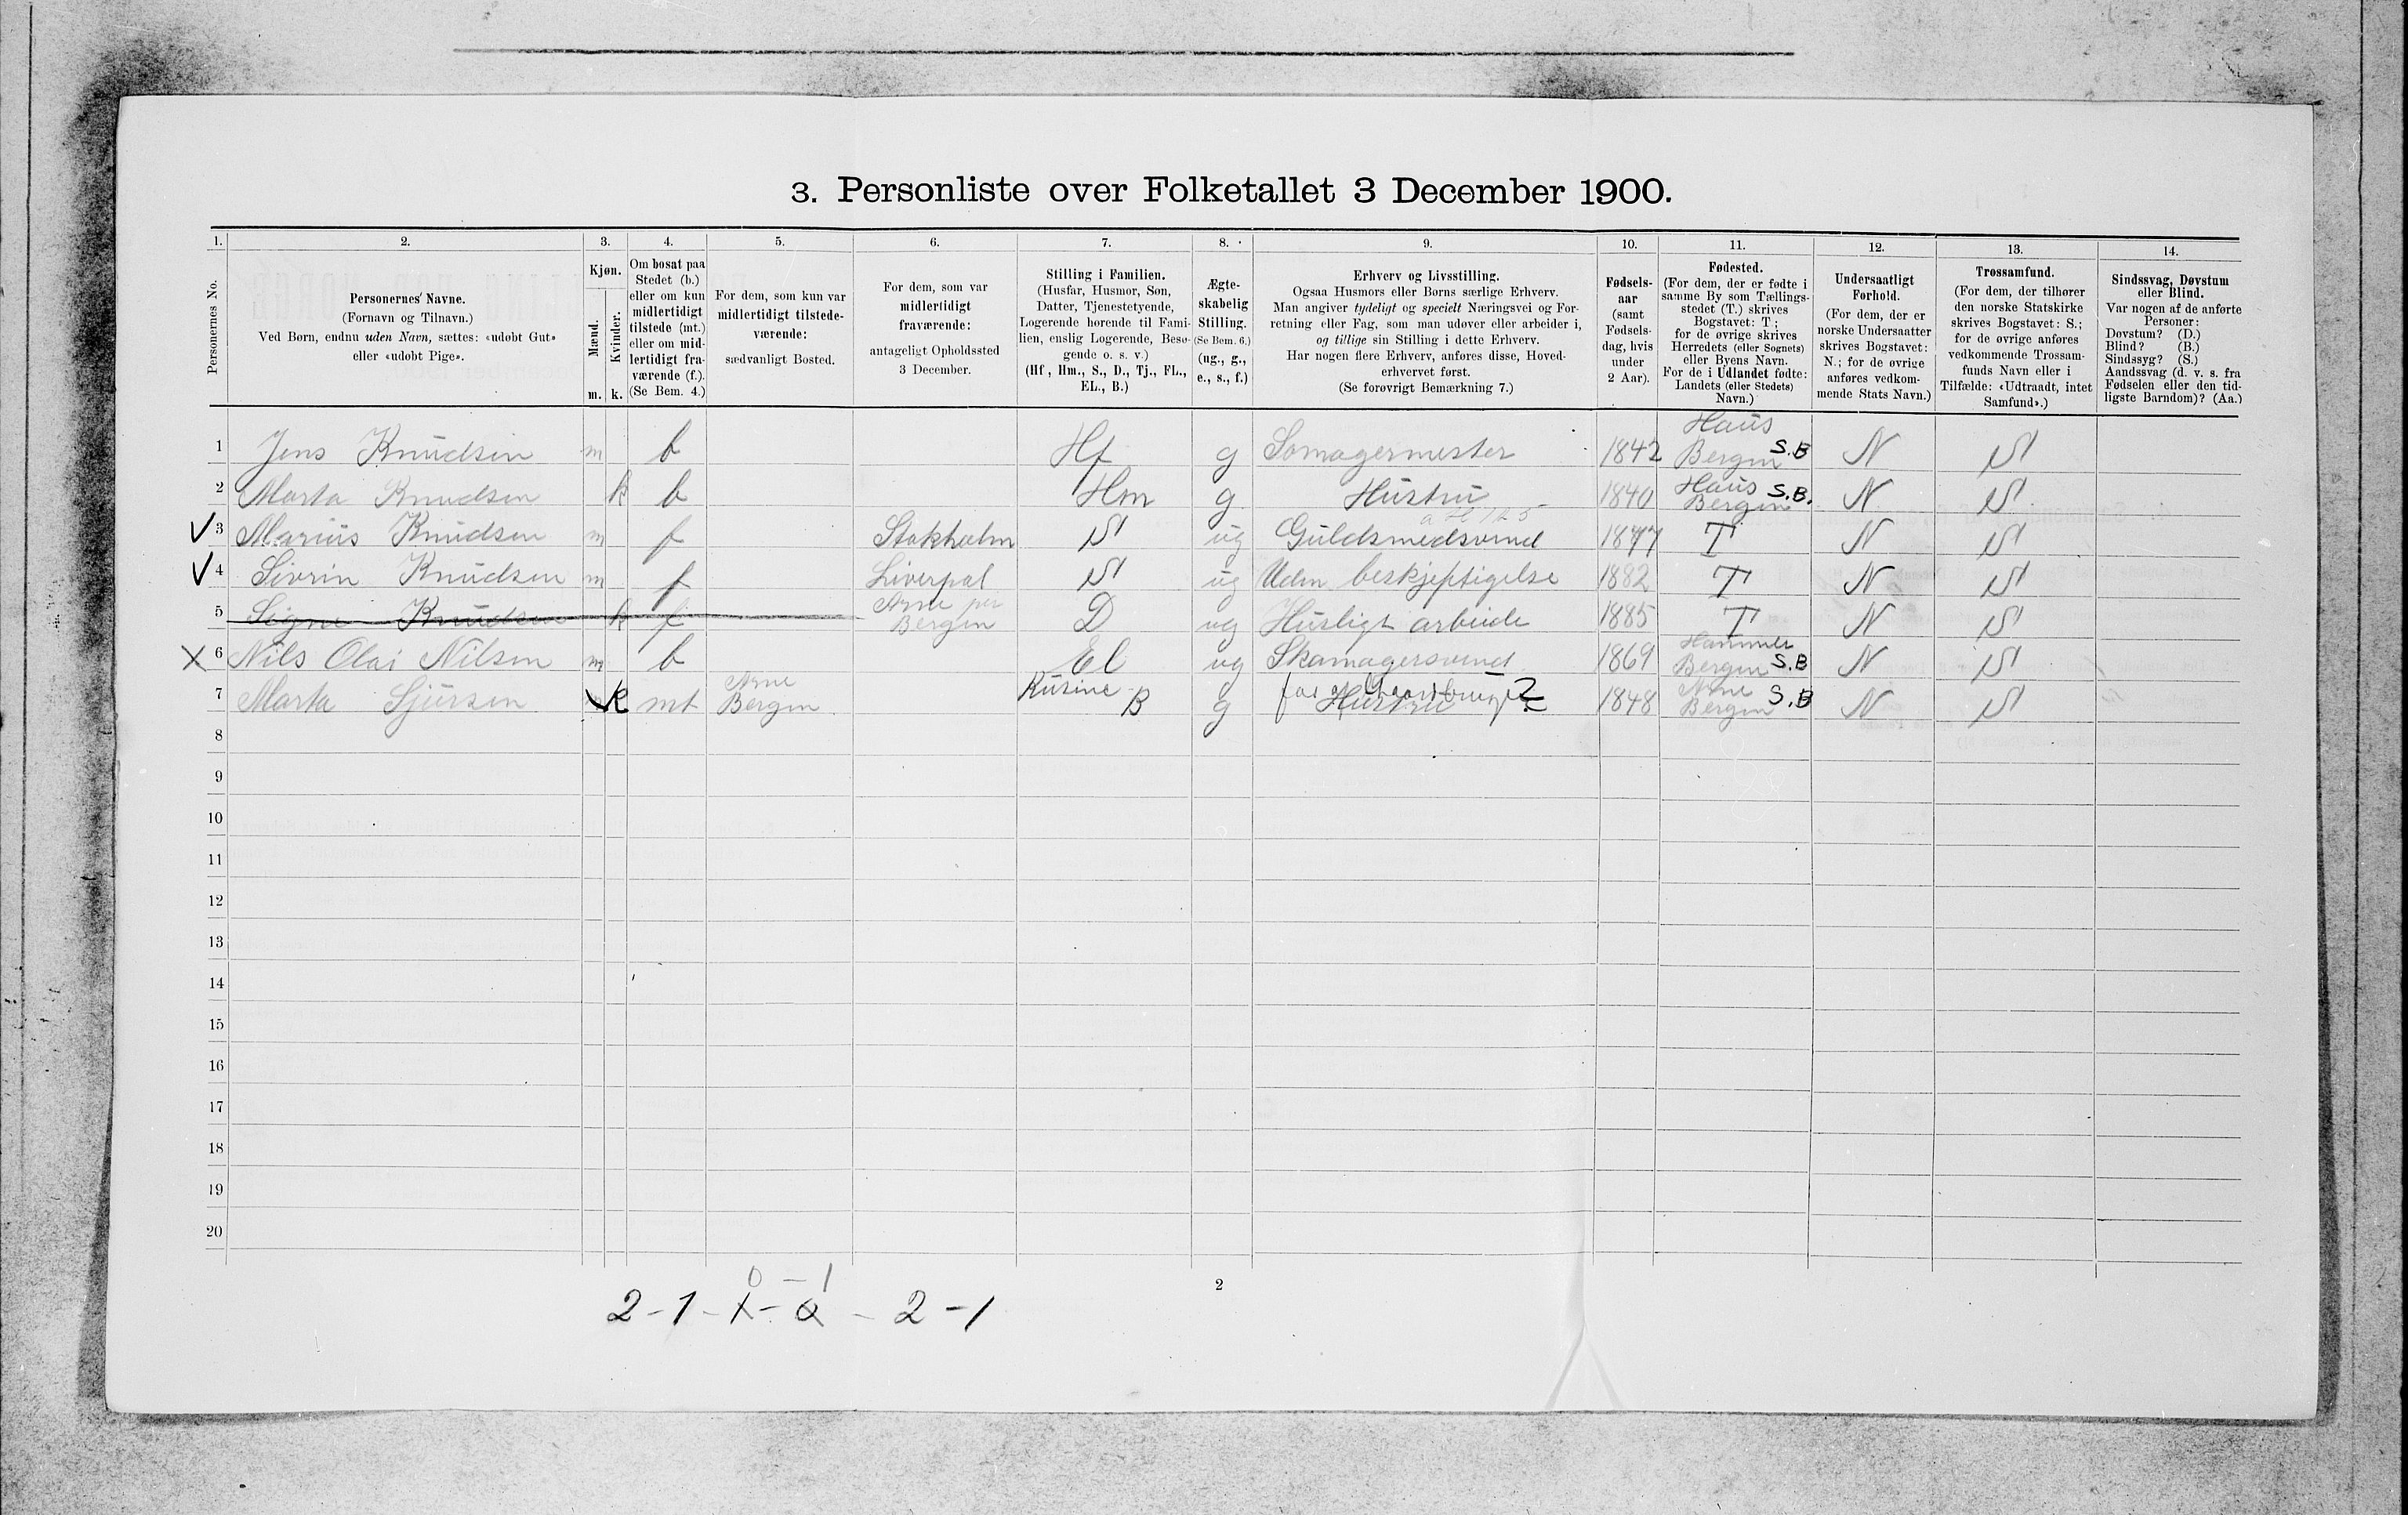 3. Personliste over Folketallet 3 December 1900.
1. 2. 3. 4. 5. 6. 7. 8. 9. 10. 11. 12. 13. 14.
Personernes No.
Personernes' Navne.
(Fornavn og Tilnavn.)
Ved Børn, endnu uden Navn, sættes: «udøbt Gut»
eller «udøbt Pige».
Kjøn.
Mænd. Kvinder.
m. k.
Om bosat paa
Stedet (b.)
eller om kun
midlertidigt
tilstede (mt.)
eller om mid-
lertidigt fra-
værende (f.).
(Se Bem. 4.)
For dem, som kun var
midlertidigt tilstede-
værende:
sædvanligt Bosted.
For dem, som var
midlertidigt
fraværende:
antageligt Opholdssted
3 December.
Stilling i Familien.
(Husfar, Husmor, Søn,
Datter, Tjenestetyende,
Logerende hørende til Fami-
lien, enslig Logerende, Besø-
gende o. s. v.)
(Hf., Hm., S., D., Tj., FL.,
EL., B.)
Ægte-
skabelig
Stilling.
(Se Bem. 6.)
(ug., g.,
e., s., f.)
Erhverv og Livsstilling.
Ogsaa Husmors eller Børns særlige Erhverv.
Man angiver tydeligt og specielt Næringsvei og For-
retning eller Fag, som man udøver eller arbeider i,
og tillige sin Stilling i dette Erhverv.
Har nogen flere Erhverv, anføres disse, Hoved-
erhvervet først.
(Se forøvrigt Bemærkning 7.)
Fødsels-
aar
(samt
Fødsels-
dag, hvis
under
2 Aar).
Fødested.
(For dem, der er fødte i
samme By som Tællings-
stedet (T.) skrives
Bogstavet: T;
for de øvrige skrives
Herredets (eller Sognets)
eller Byens Navn.
For de i Udlandet fødte:
Landets (eller Stedets)
Navn.)
Undersaatligt
Forhold.
(For dem, der er
norske Undersaatter
skrives Bogstavet:
N.; for de øvrige
anføres vedkom-
mende Stats Navn.)
Trossamfund.
(For dem, der tilhører
den norske Statskirke
skrives Bogstavet: S.;
for de øvrige anføres
vedkommende Trossam-
funds Navn eller i
Tilfælde: «Udtraadt, intet
Samfund».)
Sindssvag, Døvstum
eller Blind.
Var nogen af de anførte
Personer:
Døvstum? (D.)
Blind? (B.)
Sindssyg? (S.)
Aandssvag (d. v. s. fra
Fødselen eller den tid-
ligste Barndom)? (Aa.)
Haus
1 Jens Knudsen m b Hf g Somagermester 1842 Bergen S.B N S
Haus
2 Marta Knudsen k b Hm g Hustru 1840 Bergen S.B. N S
3 Marius Knudsen m f Stokholm S ug Guldsmedsvend 1877 T N S
4 Sivrin Knudsen m f Liverpol S ug Uden beskjeftigelse 1882 T N S
Arne per
5 Signe Knudsen k f Bergen D ug Husligt arbeide 1885 T N S
Hammer
X 6 Nils Olai Nilsen m b El ug Skomagersvend 1869 Bergen S.B N S
Arne Kusine Arne
7 Marta Sjursen k mt Bergen B g Hustru 1848 Bergen S.B N S
8
9
10
11
12
13
14
15
16
17
18
19
20
0 - 1
2 - 1 - 1 - 0 - 2 - 1
2